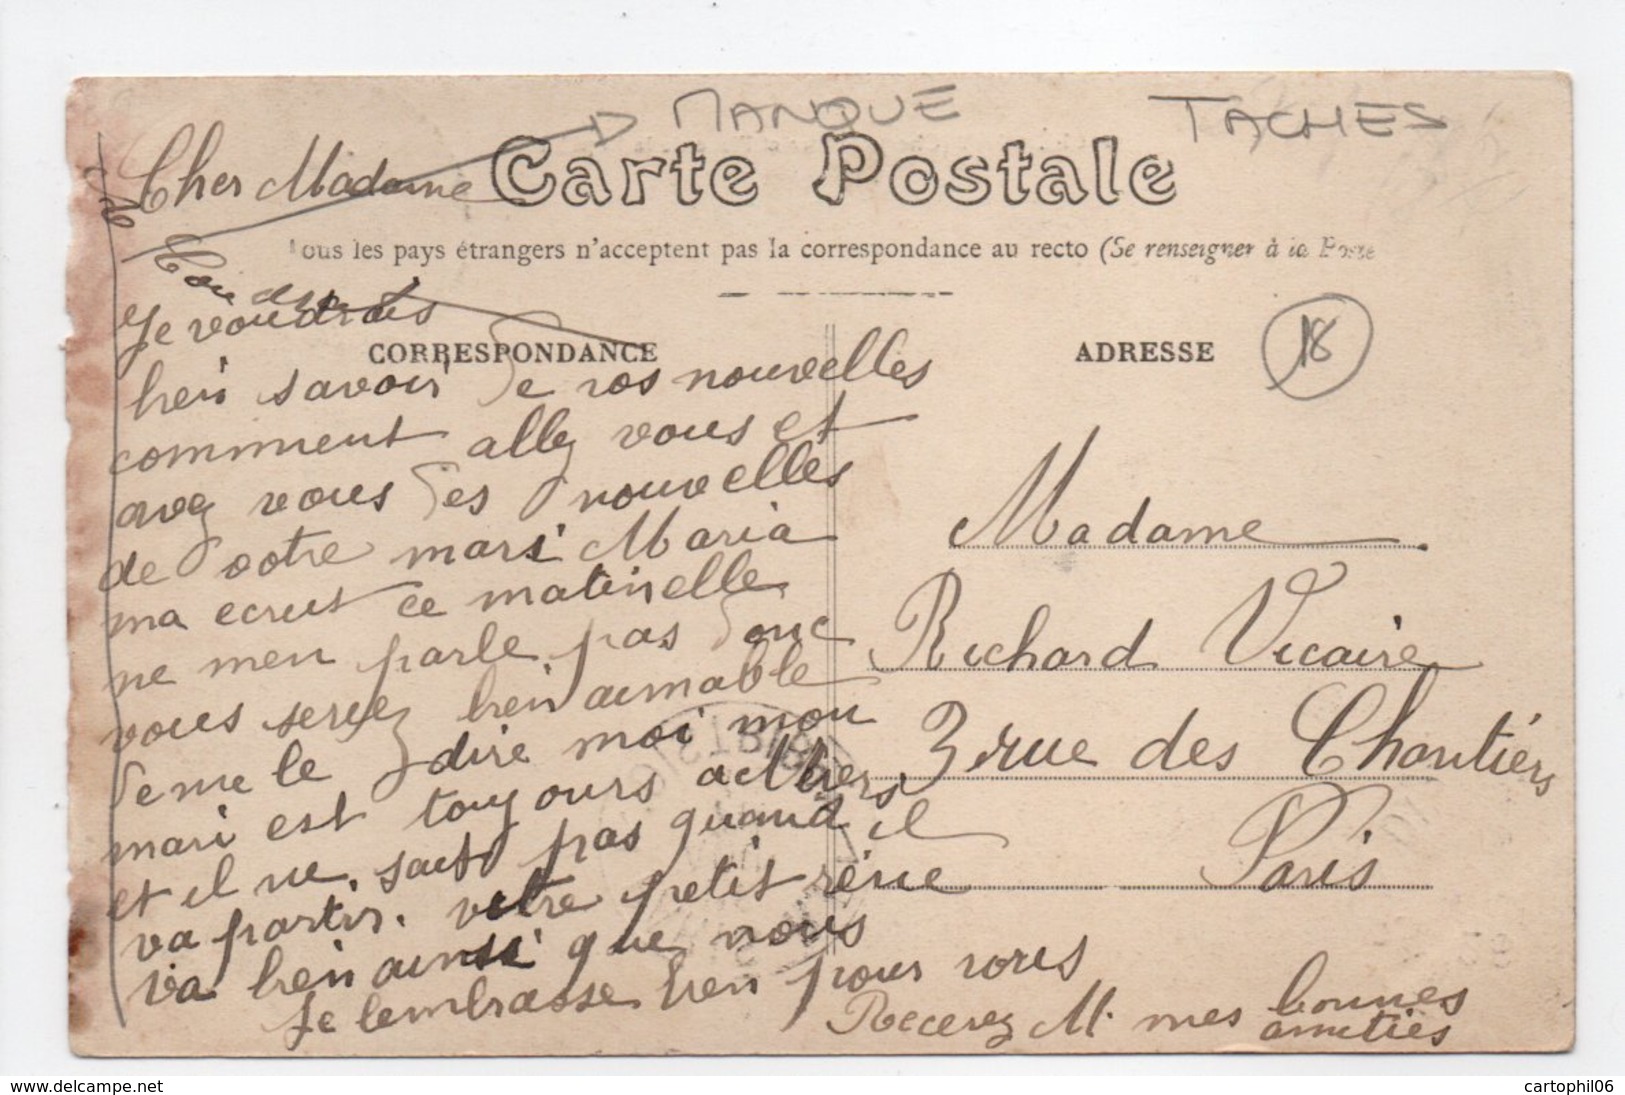 MANQUE
TACHES
Carte Postale
Tous les pays étrangers n'acceptent pas la correspondance au recto (Se renseigner à la Poste
CORRESPONDANCE
ADRESSE
18
Cher Madame
Je voudrais
bein savoir de vos nouvelles
comment allez vous et
avez vous des nouvelles
de votre mari Maria
ma ecrit ce matin elle
ne men parle pas donc
vous serez bein aimable
de me le dire moi mon
mari est toujours
et il ne sait pas quand il
va partir. votre petit réne
va bein ainsi que nous
Je lembrasse bien pour vous
Recevez M. mes bonnes
amities
Madame
Richard Vicaire
3 rue des Chantiers
Paris
www.delcampe.net
cartophil06